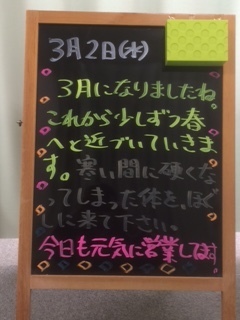 3月2日(水)
3月になりましたね。
これから少しずつ春
へと近づいていきま
す。寒い間に硬くな
ってしまった体を、ほぐ
しに来て下さい。
今日も元気に営業してます。